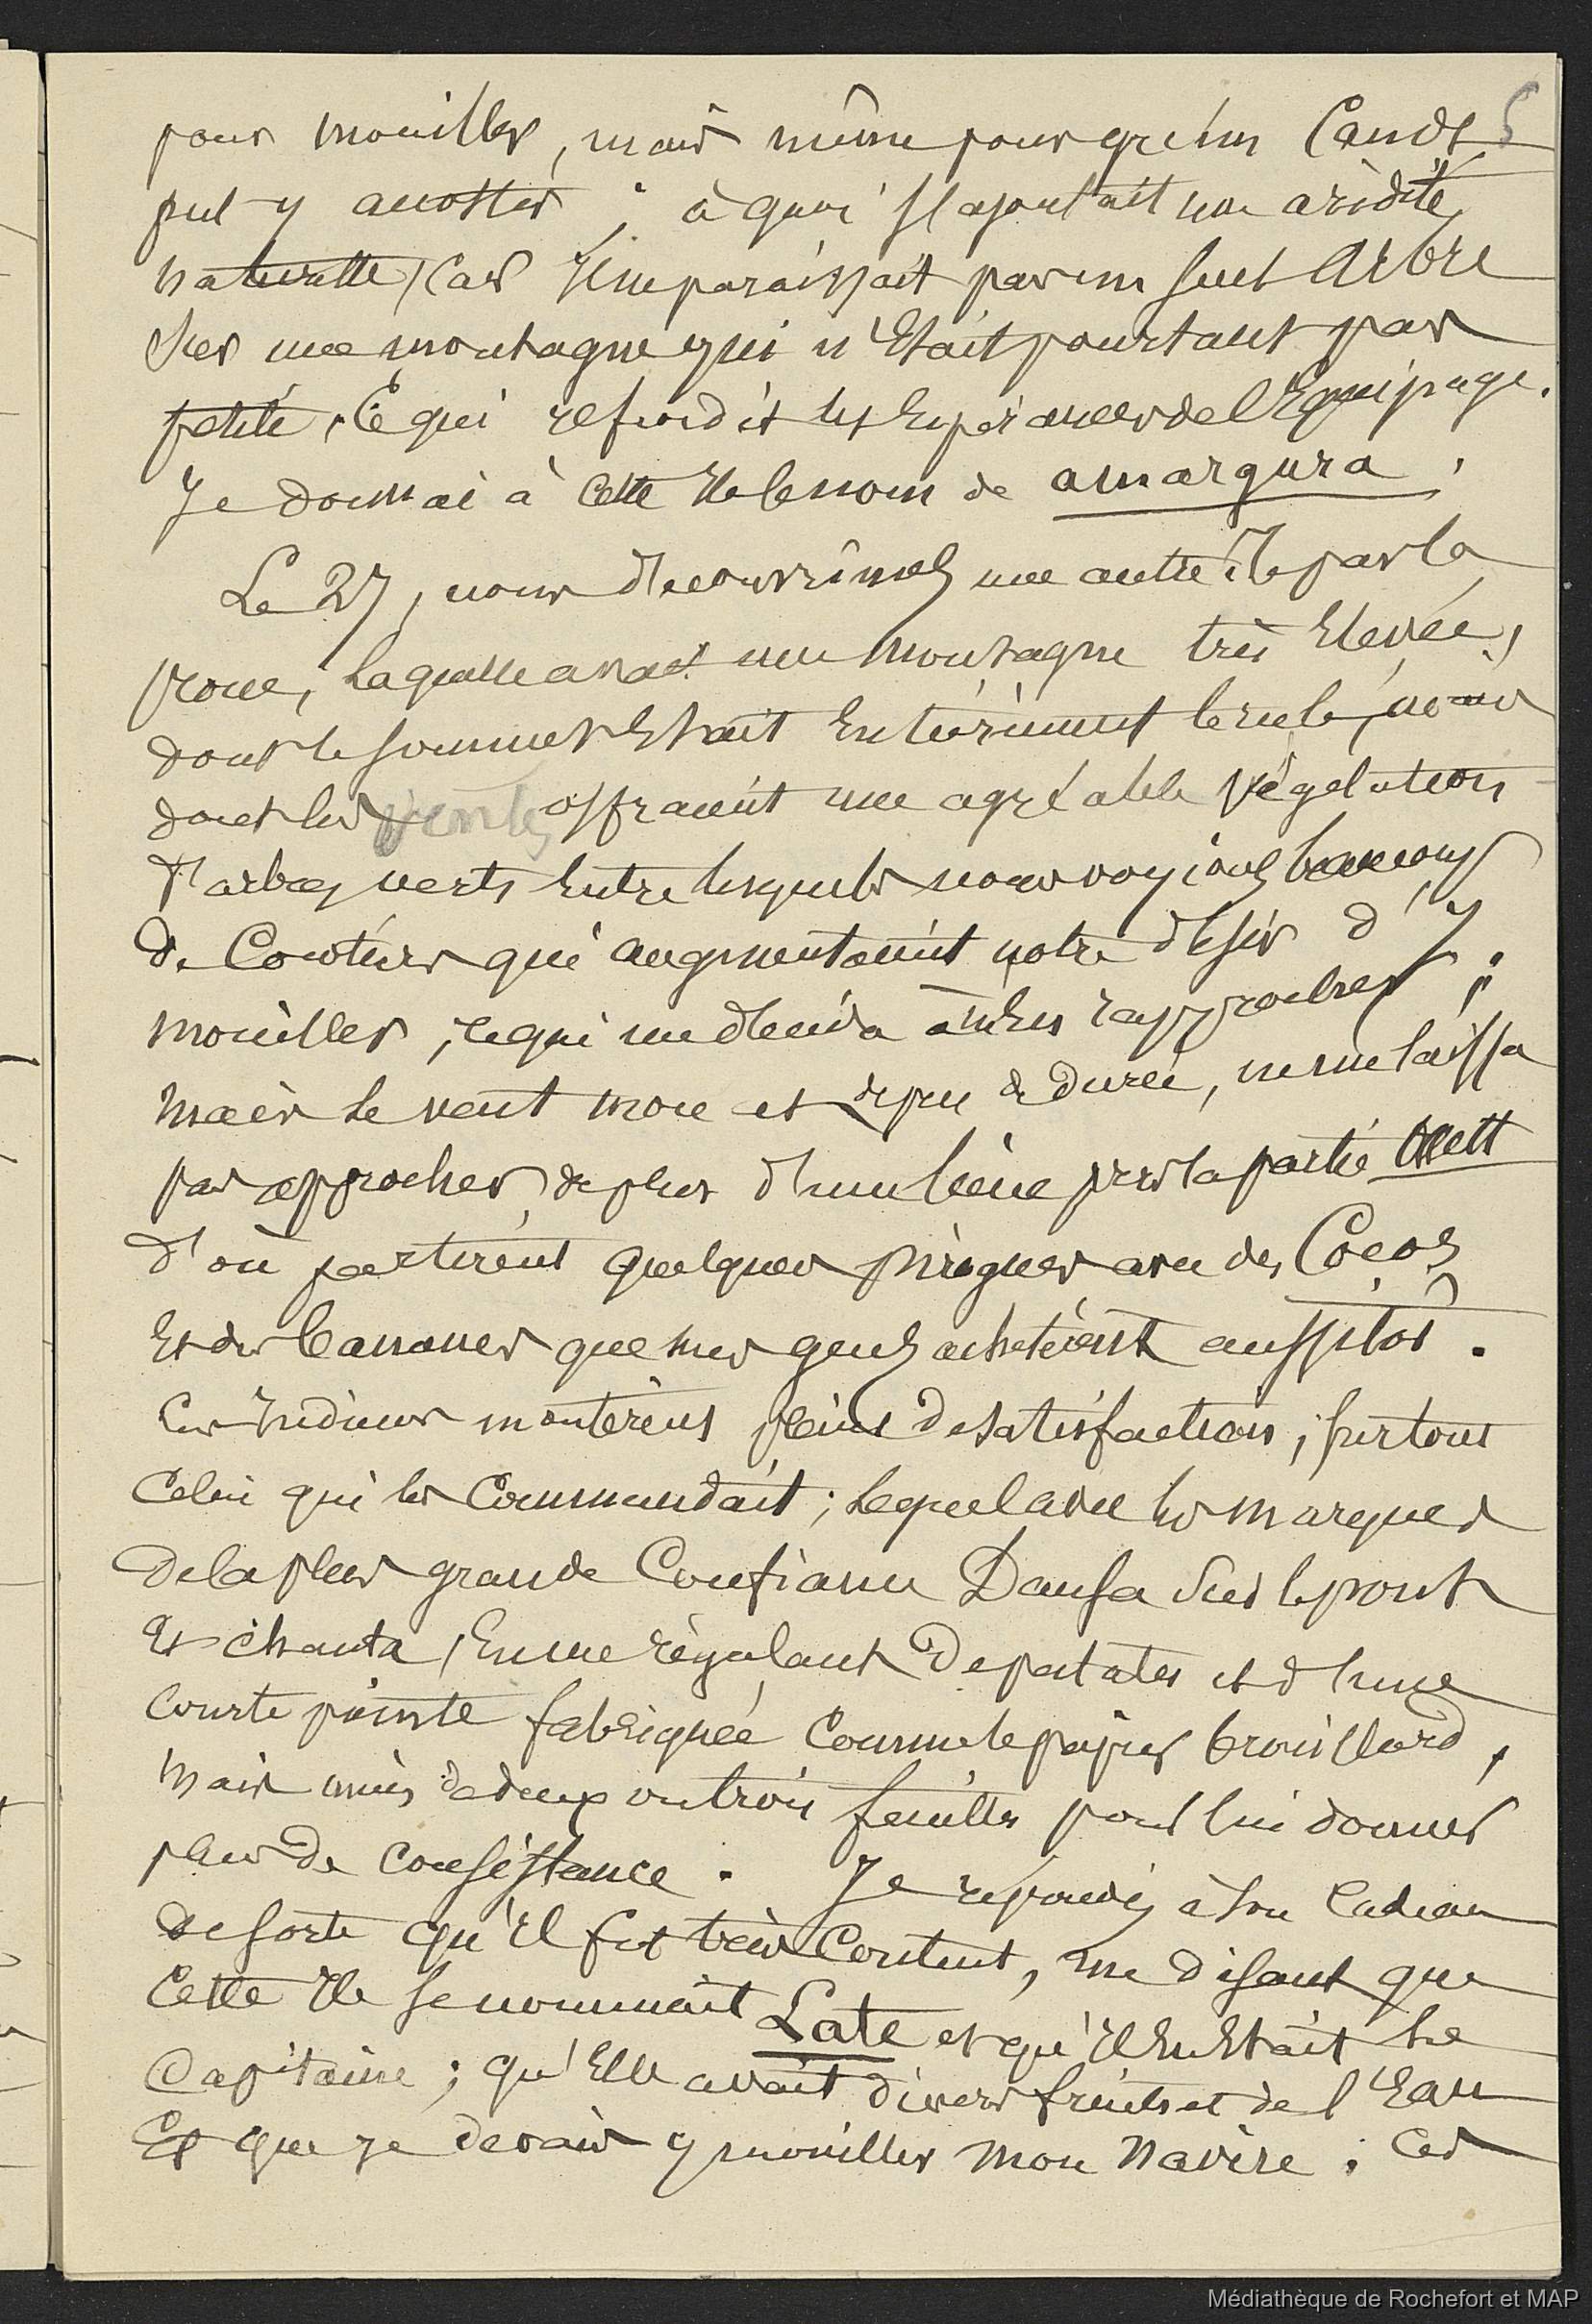 5
pour mouiller, mais même pour qu'un Canot
put y accoster ; à quoi s'ajoutait une aridité
naturelle, car il ne paraissait pas un seul Arbre
Sur une montagne qui n'Etait pourtant pas
petite, Ce qui refroidit les Espérances de l'Equipage.
Je donnai à Cette Ile le nom de amargura.
Le 27, nous découvrîmes une autre île par la
proue, laquelle avait une Montagne très Elevée,
dont le sommet Etait Entièrement brulé, mais
dont les pentes offraient une agréable végétation
d'arbres verts Entre lesquels nous voyions beaucoup
de Cocotiers qui augmentaient notre désir d'y
mouiller, ce qui me décida à m'en rapprocher ;
mais le vent mou et de peu de durée, ne me laissa
pas approcher de plus d'une lieue vers la partie
d'où partirent quelques pirogues avec des Cocos
Et des bananes que mes gens achetèrent aussitôt.
Ces Indiens montèrent pleins de satisfaction, surtout
Celui qui les Commandait ; lequel avec les marques
de la plus grande Confiance Dansa Sur le pont
Et chanta, En me régalant De patates et d'une
Courte pointe fabriquée Comme le papier brouillard,
mais unis de deux ou trois feuilles pour lui donner
plus de consistance. Je répondis à son Cadeau
de sorte qu'il fut très Content, me disant que
Cette Ile se nommait Late et qu'il En Etait le
Capitaine ; qu'Elle avait divers fruits et de l'Eau
Et que je devais y mouiller mon Navire. Ces
Médiathèque de Rochefort et MAP